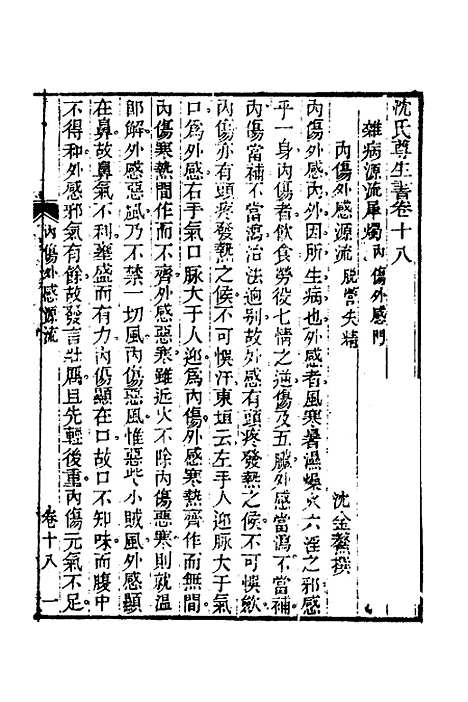 沈氏尊生書卷十八
雜病源流犀燭 內傷外感門
內傷外感源流 脫營失精
沈金鰲撰
內傷外感內外因所生病也外感者風寒暑濕燥火六淫之邪感
乎一身內傷者飲食勞役七情之逆傷及五臟外感當瀉不當補
內傷當補不當瀉治法適別故外感有頭疼發熱之候不可悞歛
內傷亦有頭疼發熱之候不可悞汗東垣云左手人迎脉大于氣
口爲外感右手氣口脉大于人迎爲內傷外感寒熱齊作而無間
內傷寒熱間作而不齊外感惡寒雖近火不除內傷惡寒則就溫
卽解外感惡風乃不禁一切風內傷惡風惟惡些小賊風外感顯
在鼻故鼻氣不利壅盛而有力內傷顯在口故口不知味而腹中
不得和外感邪氣有餘故發言壯厲且先輕後重內傷元氣不足
內傷外感源流
卷十八
一